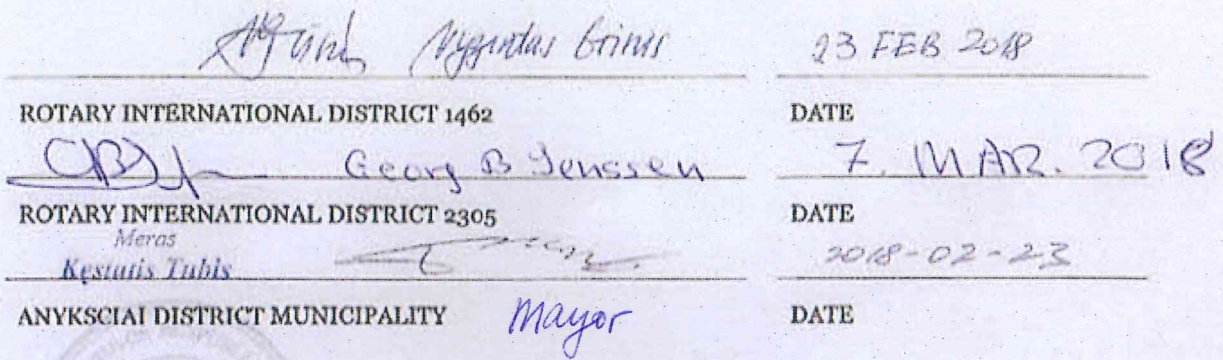 Vygintas Grinis 23 FEB 2018
ROTARY INTERNATIONAL DISTRICT 1462 DATE
Georg B Jenssen 7. MAR. 2018
ROTARY INTERNATIONAL DISTRICT 2305 DATE
Meras
Kęstutis Tubis 2018-02-23
ANYKSCIAI DISTRICT MUNICIPALITY Mayor DATE